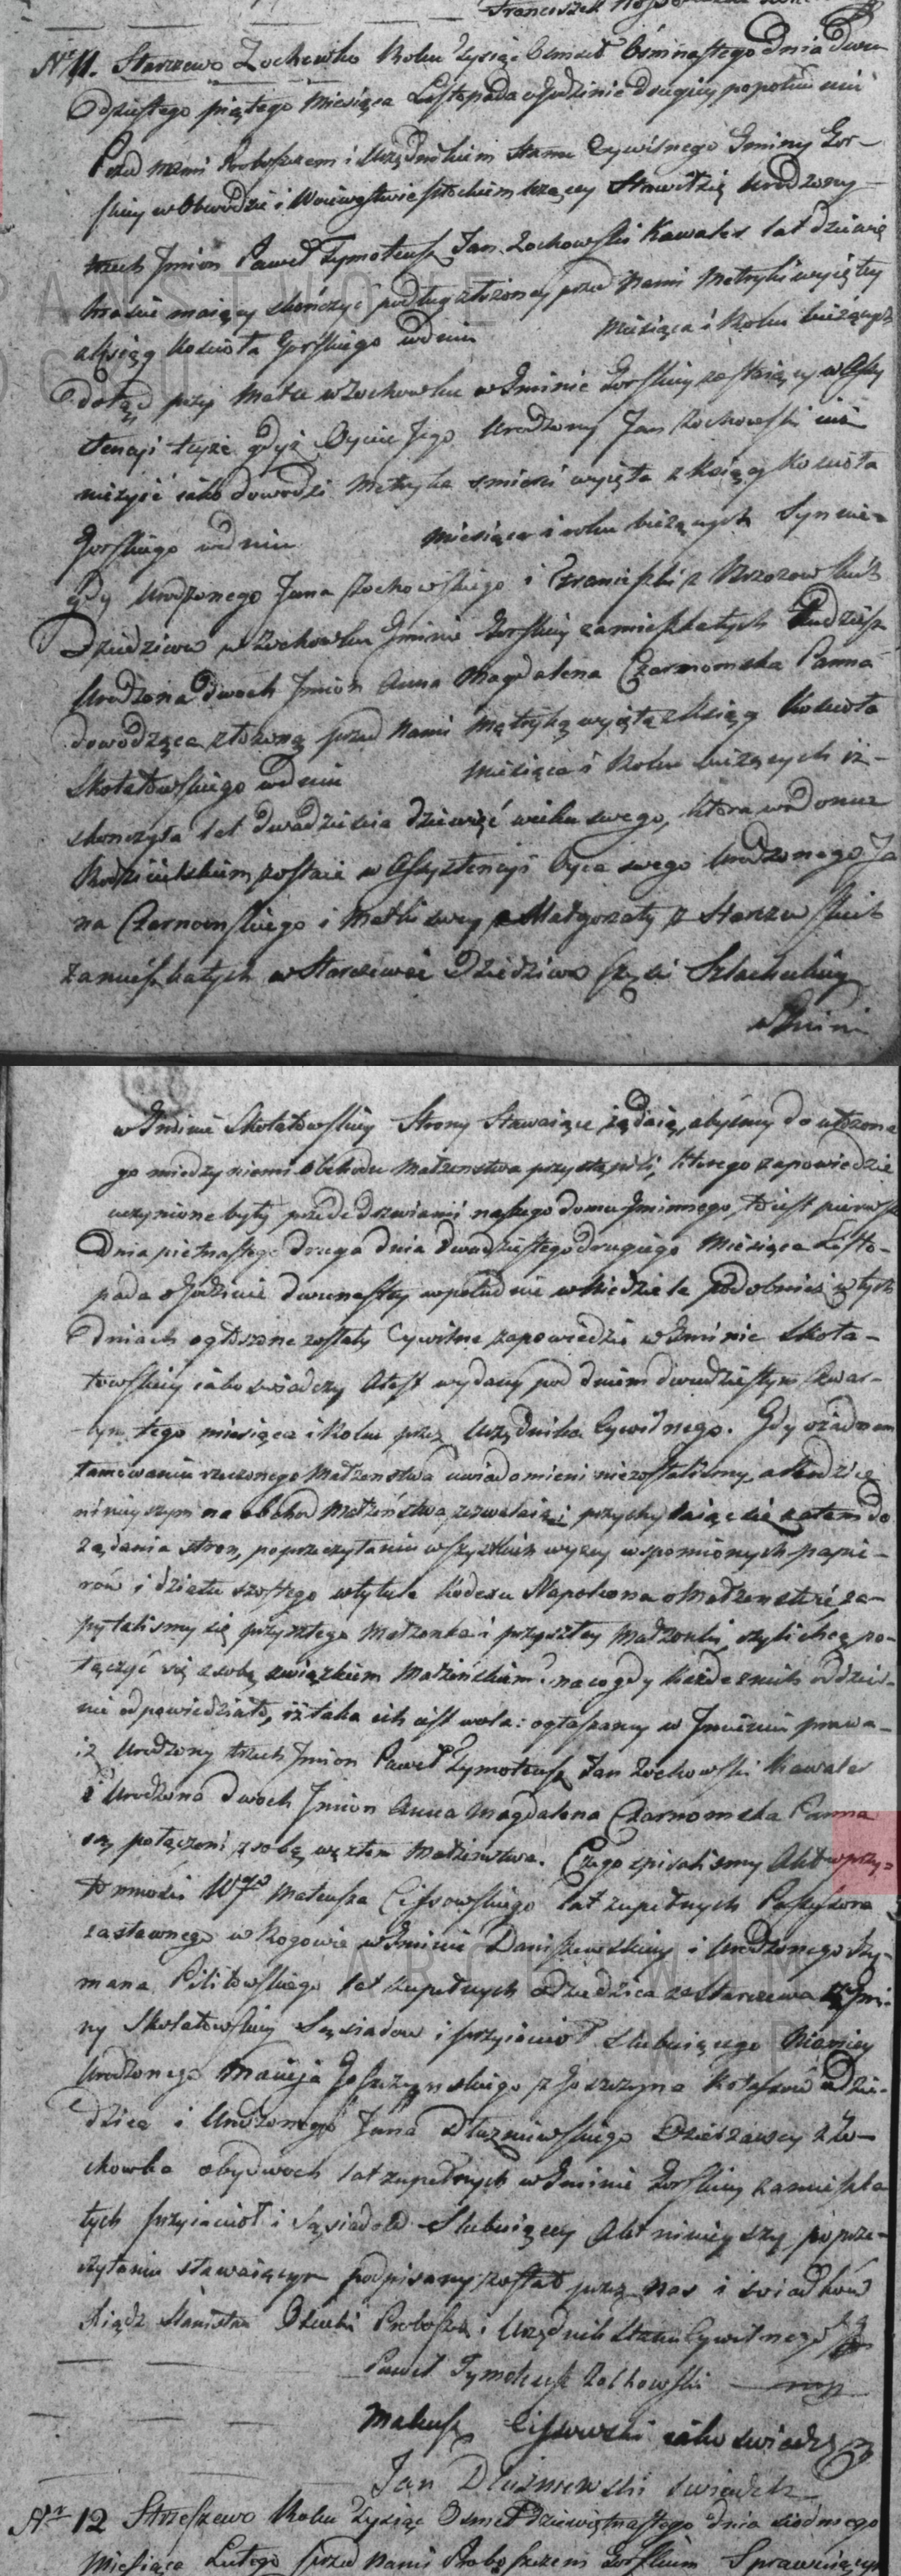 Franciszek
Nr 11. Starzewo Zochowko Roku Tysiąc Osmset Ośmnastego Dnia Dwu
Dziestego piątego Miesiąca Listopada o Godzinie drugiey popołudniu
Przed nami Proboszczem i Urzędnikiem Stanu Cywilnego Gminy Gor-
skiey w Obwodzie i Woiewodztwie płockiem Stawił się Urodzony
trzech Imion Paweł Tymoteusz Jan Zochowski Kawaler lat
maiący skończyć podług złożoney przed Nami Metryki wyiętey
z Ksiąg Kościoła Gorskiego w dniu Miesiąca i Roku bieżących
Dotąd przy Matce w Zochowku w Gminie Gorskiey zostaiący w Assy
stencyi teyże gdyż Oyciec Jego Urodzony Jan Zochowski iuż
nieżyie iako dowodzi Metryka smierci wyięta z Ksiąg Kościoła
Gorskiego w dniu Miesiąca i roku bieżących Syn nie-
gdy Urodzonego Jana Zochowskiego i Franciszki z Brzozowskich
Dziedziców w Zochowku Gminie Gorskiey zamieszkałych Tudziesz
Urodzona Dwoch Imion Anna Magdalena Czarnomska Panna
dowodząca złożoną przed Nami Metryką wyiętą z Ksiąg Kościoła
Skołatowskiego w dniu Miesiąca i Roku bieżących iż
skończyła lat dwadzieścia dziewięć wieku swego, która w domu
Rodzicielskim zostaie w Assystencyi Oyca swego Urodzonego Ja
na Czarnomskiego i Matki swey Małgorzaty z
Zamieszkałych w Starzewie Dziedziców Szlacheckiey
w Gminie
w Gminie Skołatowskiey Strony Stawaiące żądaią, abyśmy do ułożone
go miedzy niemi obchodu Małżenstwa przystąpili, którego zapowiedzie
uczynione były przede drzwiami naszego domu Gminnego, to iest pierwsza
Dnia pietnastego druga dnia dwudziestego drugiego Miesiąca Listo-
pada o Godzinie dwunastey w południe w Niedziele podobnież w tych
dniach ogłoszone zostały Cywilne zapowiedzie w Gminie Skoła-
towskiey iako swiadczy Attest wydany pod dniem dwudziestym Czwar-
tym tego miesiąca i Roku przez Urzędnika Cywilnego. Gdy o żadnem
tamowaniu rzeczonego Małżenstwa uwiadomieni niezostalismy, a Rodzice
ninieyszym na obchod Małżeństwa zezwalaią, przychylaiąc się zatem do
żądania stron, po przeczytaniu wszystkich wyżey wspomionych papie-
rów i działu szostego w tytule Kodexu Napoleona o Małżenstwie, za-
pytalismy się przyszłego Małżonka i przyszłey Małżonki, czyli chcą po-
łączyć się z sobą związkiem Małżeńskim? na co gdy każde z nich oddziel-
nie odpowiedziało, iż taka ich iest wola: ogłaszamy w Imieniu prawa-
iż Urodzony trzech Imion Paweł Tymoteusz Jan Zochowski Kawaler
i Urodzona dwoch Imion Anna Magdalena Czarnomska Panna
są połączeni z sobą węzłem Małżenstwa. Czego spisalismy Akt w przy-
tomności Wgo Mateusza Cissowskiego lat zupełnych Possessora
zastawnego w Rogowie w Gminie Daniszewskiey i Urodzonego Szy-
mana Pilitowskiego lat zupełnych Dziedzica ze Starzewa z Gmi-
ny Skołatowskiey Sąsiadow i przyiaciół Slubuiącego Niemniey
Urodzonego Macieja Goszczynskiego z Goszczyna Dzie-
dzica i Urodzonego Jana Dłuzniewskiego Dzierżawcy z Zo-
chowka obydwoch lat zupełnych w Gminie Gorskiey zamieszka
łych przyiaciół i Sąsiadów Slubuiącey Akt ninieyszy po prze-
czytaniu stawaiącym podpisany został przez nas i swiadków
Xiądz Stanisław Proboszcz i Urzędnik Stanu Cywilnego
Paweł Tymoteusz Zochowski mp
Mateusz Cissowski iako swiadek
Jan Dłuzniewski swiadek
Nr 12 Strzeszewo Roku Tysiąc Osmset Dziewiętnastego dnia siodmego
Miesiąca Lutego przed Nami Proboszczem Gorskim Sprawuiącym